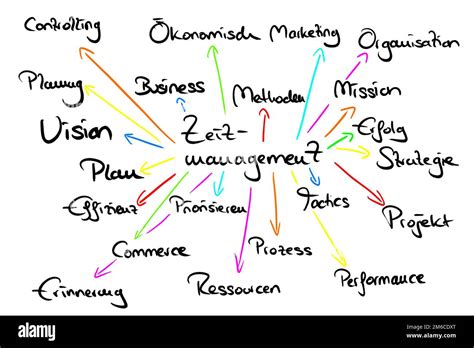 Controlling
Ökonomisch
Marketing
Organisation
Planung
Business
Methoden
Mission
Vision
Zeit-
management
Erfolg
Strategie
Plan
Effizienz
Priorisieren
Tactics
Projekt
Commerce
Prozess
Erinnerung
Ressourcen
Performance
alamy
Image ID: 2M6CDXT
www.alamy.com